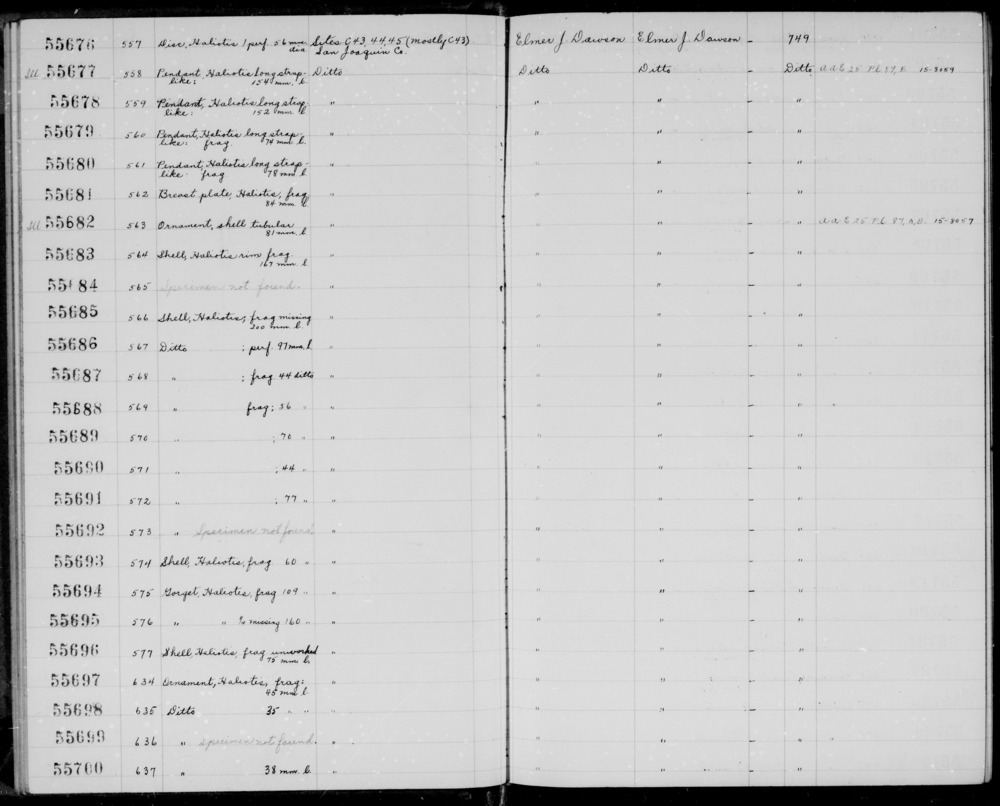 55676 557 Disc, Haliotis 1 perf. 56 mm. dia Sites C43, 44, 45 (mostly C43) San Joaquin Co. Elmer J. Dawson Elmer J. Dawson - 749
Ill 55677 558 Pendant, Haliotis long strap- Ditto Ditto Ditto - Ditto a a E 25 Pl. 87, E 15-8059
like: 154 mm. l.
55678 559 Pendant, Haliotis long strap- " " " - "
like: 152 mm. l
55679 560 Pendant, Haliotis long strap- " " " - "
like: frag 74 mm l.
55680 561 Pendant, Haliotis long strap- " " " - "
like frag 78 mm l
55681 562 Breast plate, Haliotis, frag " " " - "
84 mm l.
Ill 55682 563 Ornament, shell tubular " " " - " a a E 25 Pl. 87, A, B. 15-8057
81 mm. l.
55683 564 Shell, Haliotis rim frag. " " " - "
167 mm. l
55684 565 Specimen not found. " " " - "
55685 566 Shell, Haliotis; frag missing " " " - "
200 mm. l.
55686 567 Ditto ; perf. 97 mm. l " " " - "
55687 568 " ; frag 44 ditto " " " - "
55688 569 " frag; 56 " " " " - "
55689 570 " ; 70 " " " " - "
55690 571 " ; 44 " " " " - "
55691 572 " ; 77 " " " " - "
55692 573 " Specimen not found. " " " - "
55693 574 Shell, Haliotis, frag 60 " " " " - "
55694 575 Gorget, Haliotis, frag 109 " " " " - "
55695 576 " " missing 160 " " " " - "
55696 577 Shell, Haliotis, frag unworked " " " - "
75 mm l.
55697 634 Ornament, Haliotis, frag: " " " - "
45 mm l
55698 635 Ditto 35 " " " " " - "
55699 636 " specimen not found. " " " - "
55700 637 " 38 mm. l. " " " - "